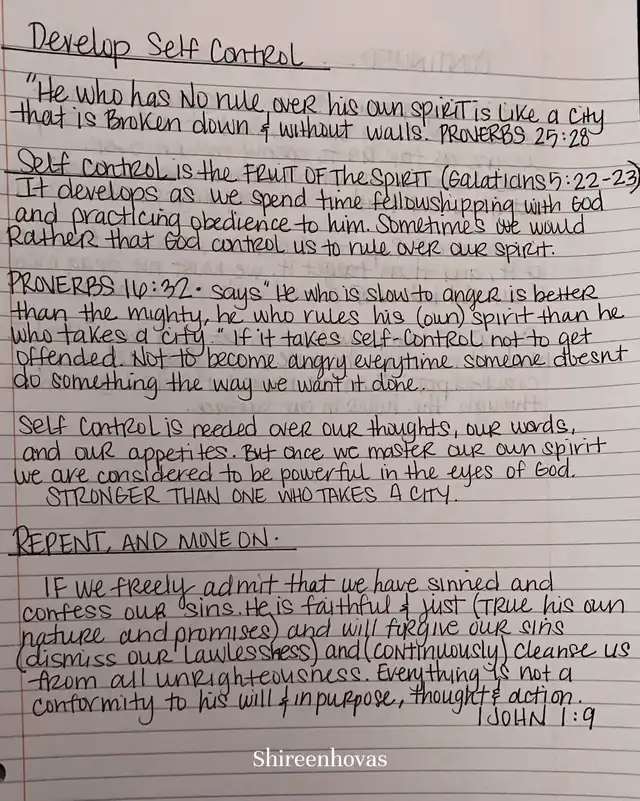 Develop Self Control
"He who has No rule over his own spirit is like a city
that is Broken down & without walls. PROVERBS 25:28
Self Control is the FRUIT OF The SPIRIT (Galatians 5:22-23)
It develops as we spend time fellowshipping with God
and practicing obedience to him. Sometimes we would
Rather that God control us to rule over our spirit.
PROVERBS 16:32. says "He who is slow to anger is better
than the mighty, he who rules his (own) spirit than he
who takes a city." If it takes self-control not to get
offended. Not to become angry everytime someone doesnt
do something the way we want it done..
Self Control is needed over our thoughts, our words,
and our appetites. But once we master our own spirit
we are considered to be powerful in the eyes of God.
STRONGER THAN ONE WHO TAKES A CITY.
REPENT, AND MOVE ON.
IF we freely admit that we have sinned and
confess our sins. He is faithful & just (TRUE his own
nature and promises) and will forgive our sins
(dismiss our lawlessness) and (continuously) cleanse us
from all unrighteousness. Everything is not a
conformity to his will & in purpose, thought & action.
1 JOHN 1:9
Shireenhovas